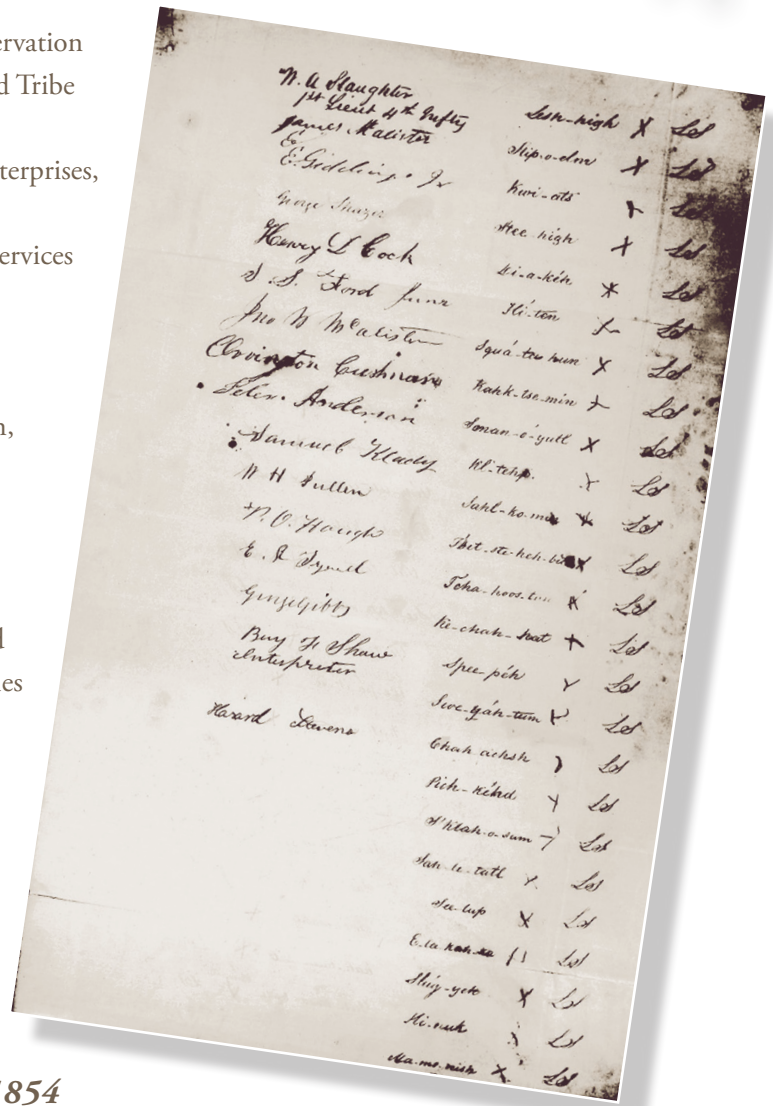 ervation
d Tribe
terprises,
ervices
n,
d
es
1854
W. A. Slaughter
1st Lieut 4th Infty
James McAlister
E. Giddings Jr
George Shazer
Henry D Cock
S. S. Ford Junr
Jno W McAlister
Clovington Cushman
Peter Anderson
Samuel Klady
W H Pullen
P. O. Hough
E. R. Tyerall
George Gibbs
Benj F Shaw
Interpreter
Hazard Stevens
Lesh-high X LS
Slip-o-elm X LS
Kwi-ats X LS
Stee-high X LS
Di-a-keh X LS
Hi-ten X LS
Squa-ta-hun X LS
Kahk-tse-min X LS
Sonan-o-yutl X LS
Kl-tehp X LS
Sahl-ko-min X LS
Tbet-ste-heh-bit X LS
Tcha-hoos-tan X LS
Ke-chah-hat X LS
Spee-peh X LS
Swe-yah-tum X LS
Chah-achsh LS
Pich-kehd X LS
S'Klah-o-sum LS
Sah-le-tatl X LS
See-lup X LS
E-la-kah-ka LS
Slug-yek X LS
Hi-nuk LS
Ma-mo-nish X LS